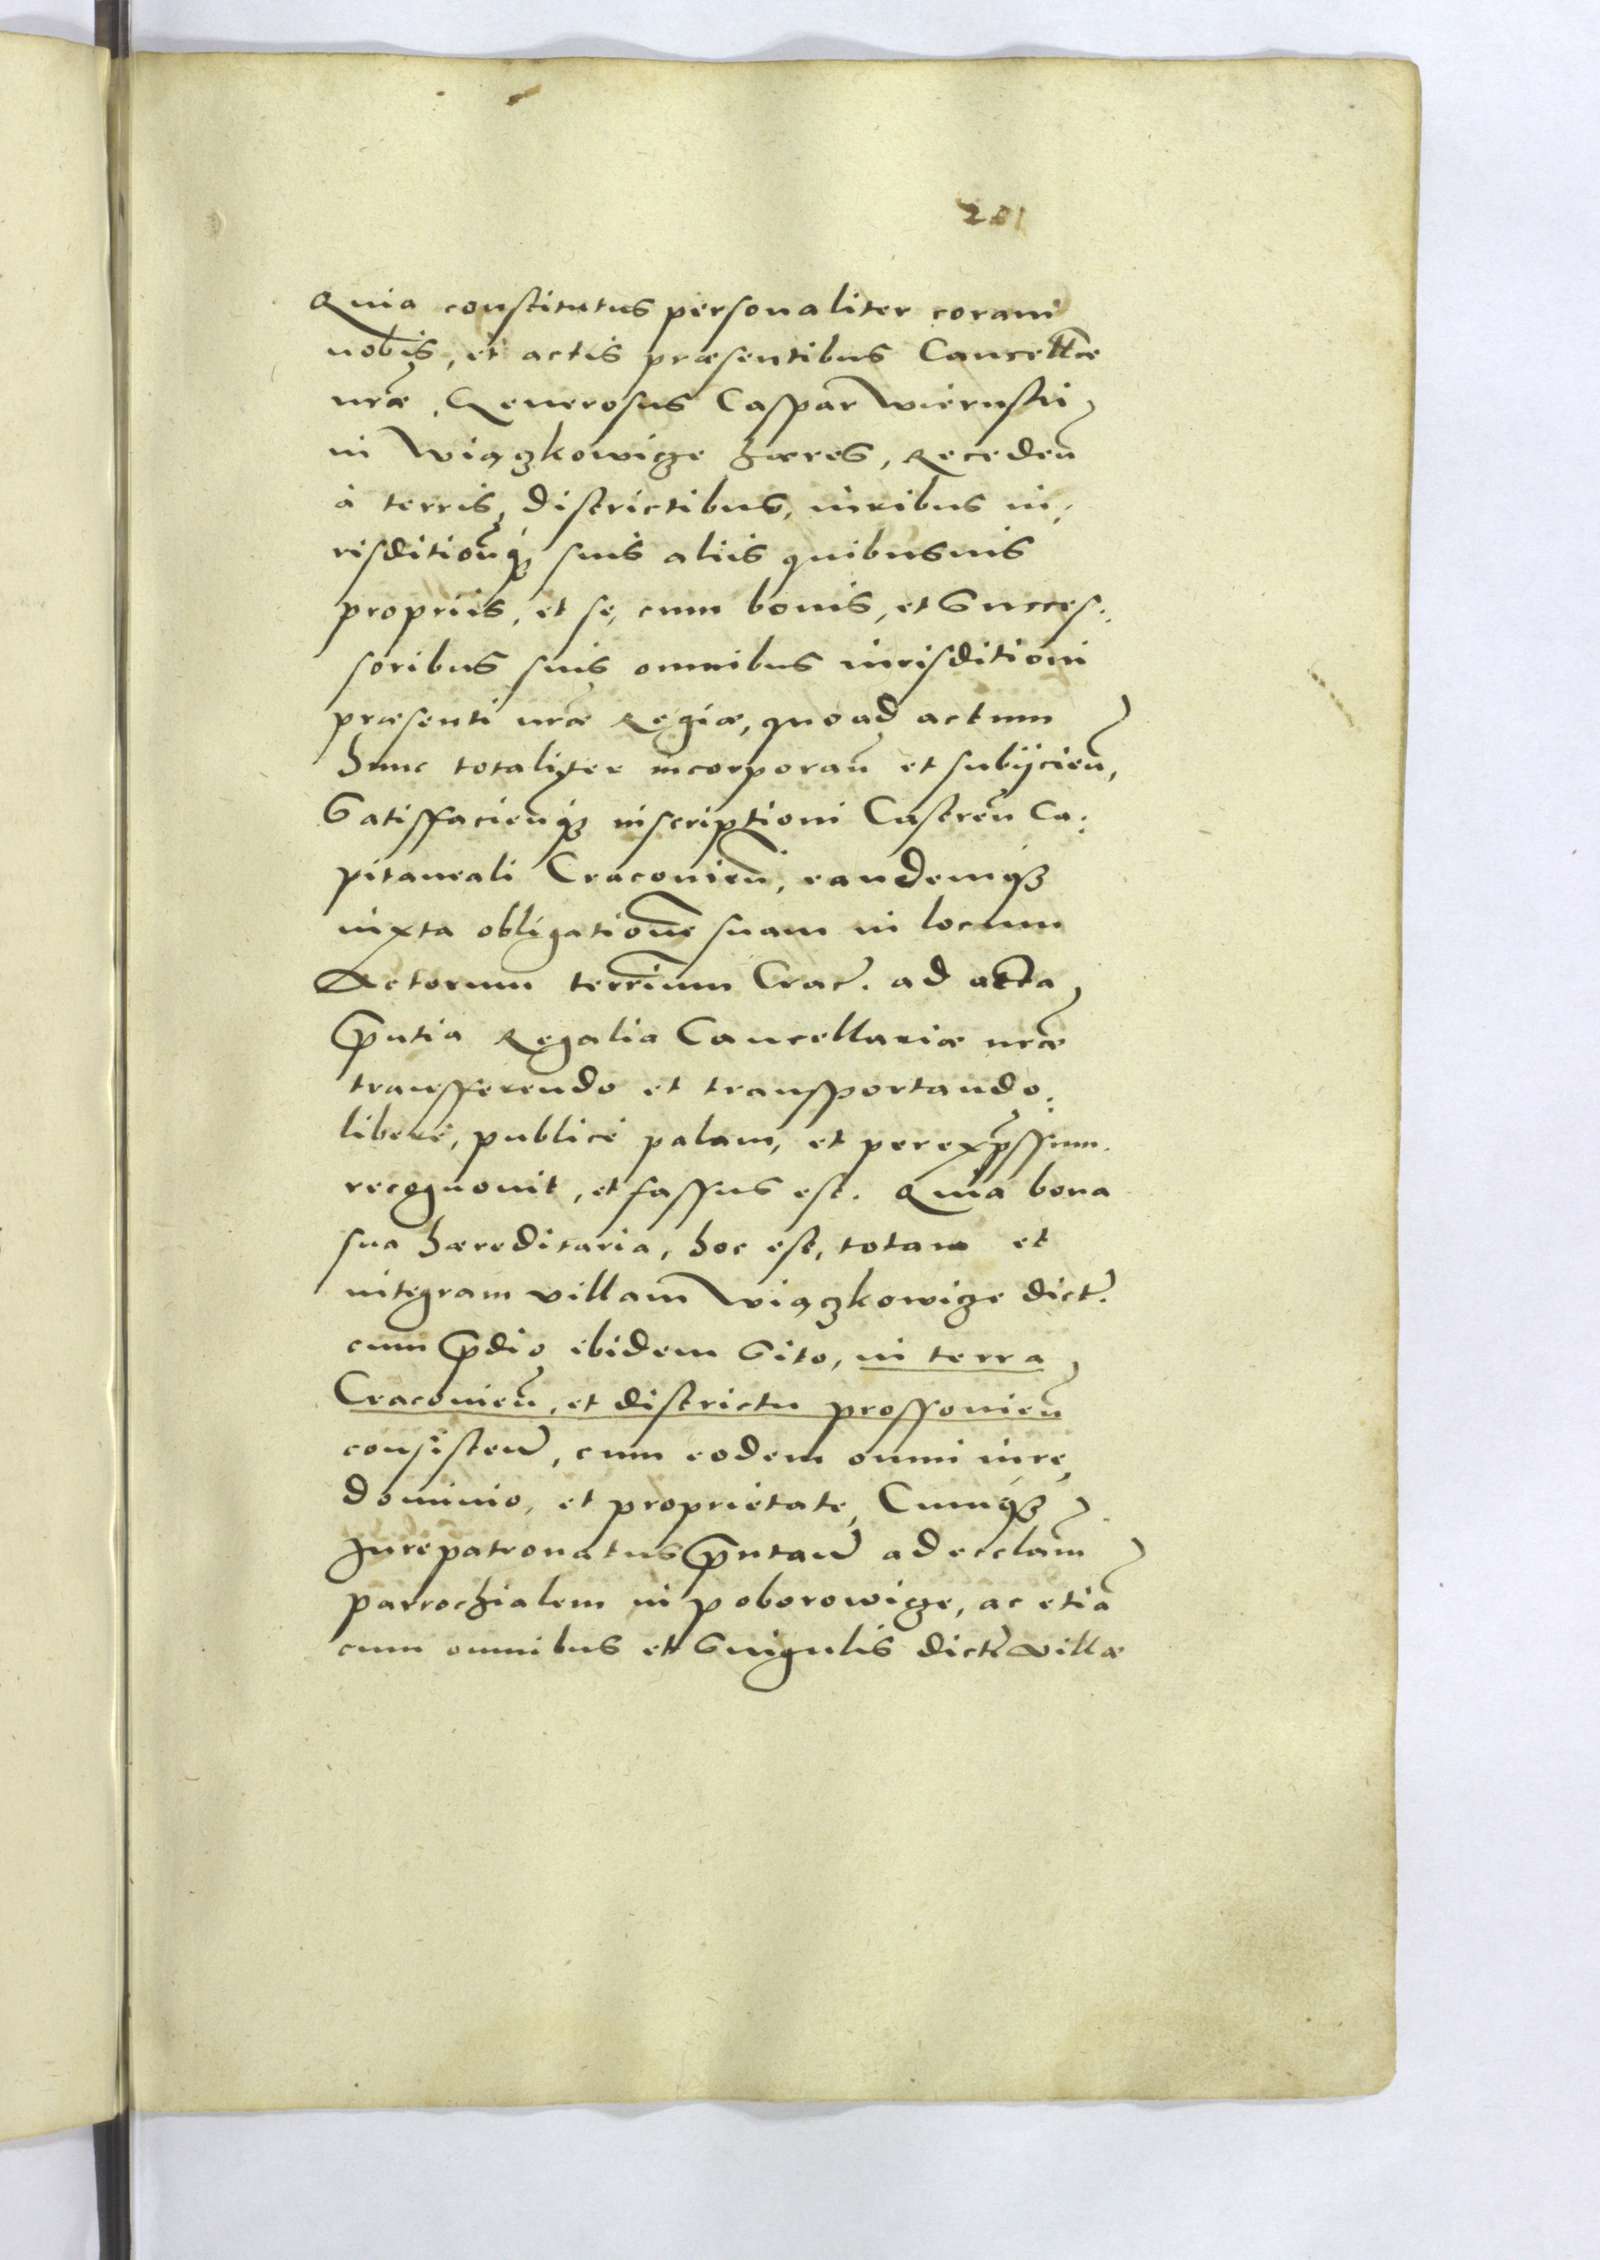 201
Quia constitutus personaliter coram
nobis, et actis præsentibus Cancellæ
nræ, Generosus Caspar Wiernski
in Wiączkowicze hæres, Recedeñ
à terris, districtibus, iuribus iu:
risditioñq3 suis aliis quibusuis
propriis, et se, cum bonis, et Succes:
soribus suis omnibus iurisditioni
præsenti nræ Regiæ, quo ad actum
hunc totaliter incorporañ et subijcieñ,
Satisfacieñq3 inscriptioni Castreñ Ca:
pitaneali Cracouieñ, eandemq3
iuxta obligationē suam in locum
Actorum terrium Crac. ad acta
pñtia Regalia Cancellariæ nræ
transferendo et transportando:
liberè, publicè palam, et per expssum
recognouit, et fassus est. Quia bona
sua hæreditaria, hoc est, totam et
integram villam Wiączkowicze dict.
cum pdio ibidem Sito, in terra
Cracouieñ, et districtu prossouieñ
consisteñ, cum eodem omni iure,
dominio, et proprietate, Cumq3
Iure patronatus pñtañ ad ecclam
parrochialem in poborowicze, ac etiã
cum omnibus et Singulis dictæ villæ